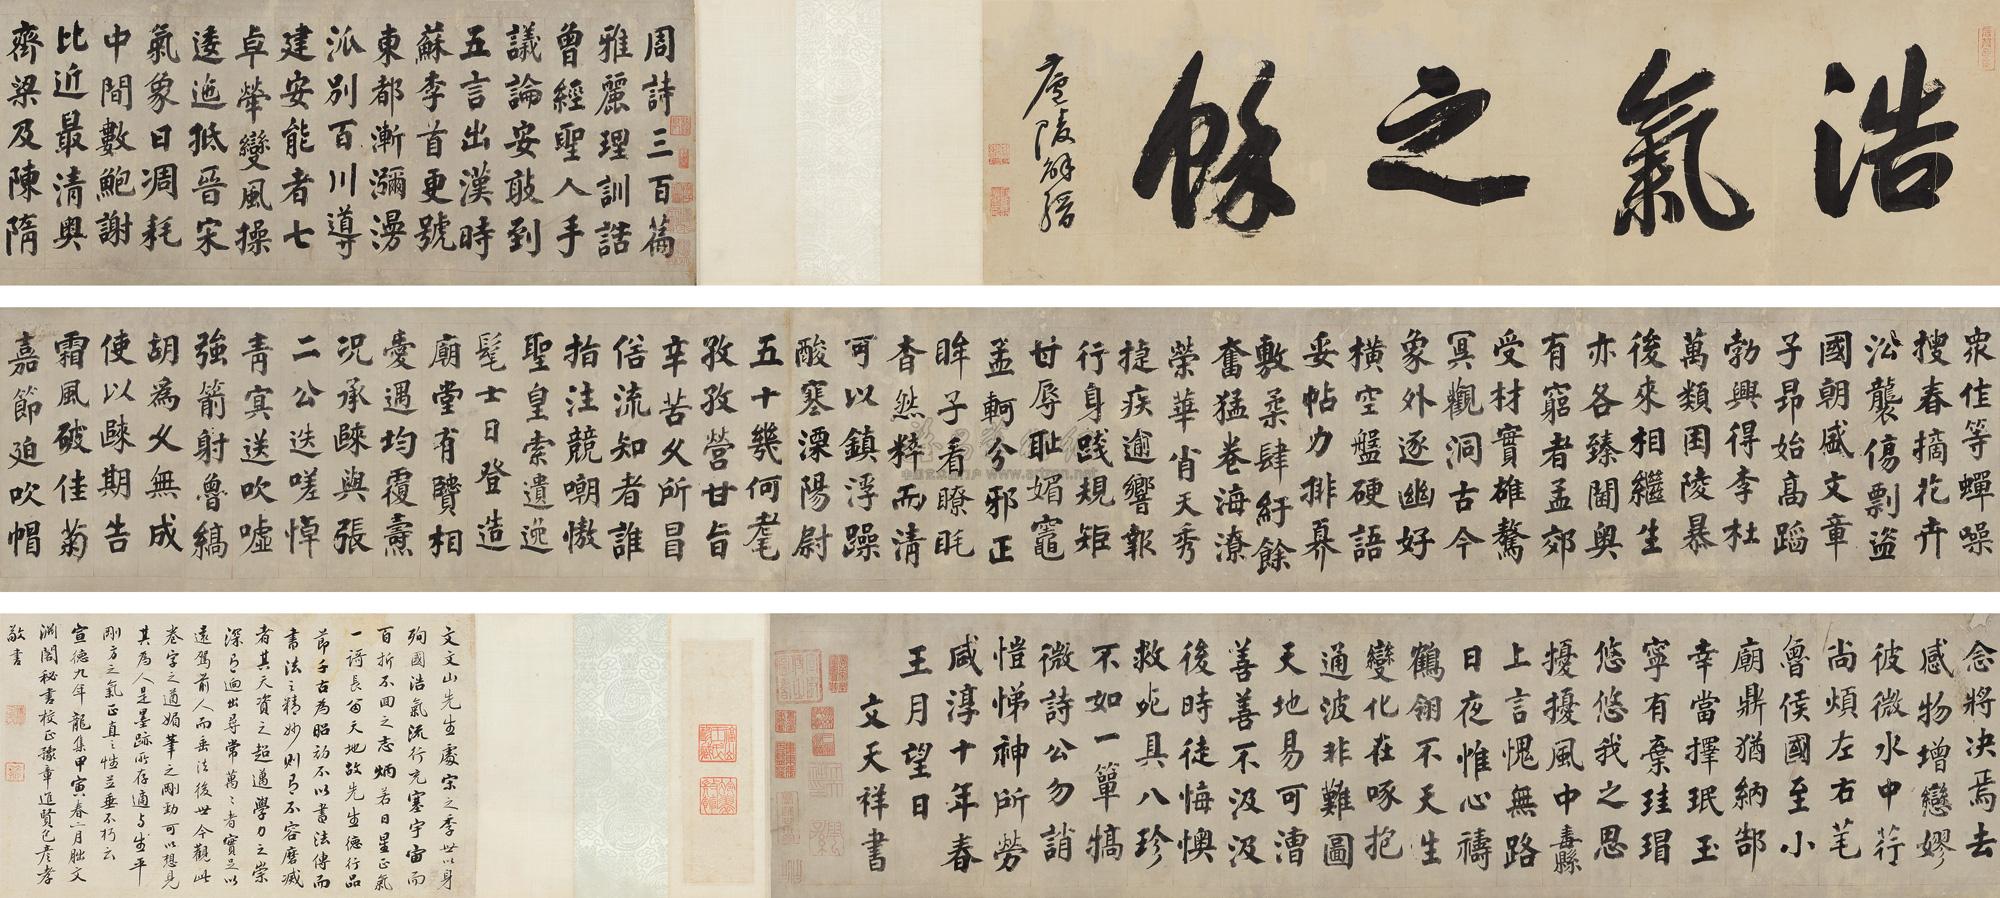 浩氣之餘
廬陵解縉
周詩三百篇
雅麗理訓誥
曾經聖人手
議論安敢到
五言出漢時
蘇李首更號
東都漸瀰漫
派別百川導
建安能者七
卓犖變風操
逶迤抵晉宋
氣象日凋耗
中間數鮑謝
比近最清奧
齊梁及陳隋
眾作等蟬噪
搜春摘花卉
沿襲傷剽盜
國朝盛文章
子昂始高蹈
勃興得李杜
萬類困陵暴
後來相繼生
亦各臻閫奧
有窮者孟郊
受材實雄驁
冥觀洞古今
象外逐幽好
橫空盤硬語
妥帖力排奡
敷柔肆紆餘
奮猛卷海潦
榮華肖天秀
捷疾逾響報
行身踐規矩
甘辱恥媚竈
孟軻分邪正
眸子看瞭眊
杳然粹而清
可以鎮浮躁
酸寒溧陽尉
五十幾何耄
孜孜營甘旨
辛苦久所冒
俗流知者誰
指注競嘲慠
聖皇索遺逸
髦士日登造
廟堂有賢相
愛遇均覆燾
況承歸與張
二公迭嗟悼
青冥送吹噓
強箭射魯縞
胡為久無成
使以歸期告
霜風破佳菊
嘉節迫吹帽
念將決焉去
感物增戀嫪
彼微水中荇
尚煩左右芼
魯侯國至小
廟鼎猶納郜
幸當擇珉玉
寧有棄珪瑁
悠悠我之思
擾擾風中纛
上言愧無路
日夜惟心禱
鶴翎不天生
變化在啄抱
通波非難圖
天地易可漕
善善不汲汲
後時徒悔懊
救死具八珍
不如一簞犒
微詩公勿誚
愷悌神所勞
咸淳十年春
王月望日
文天祥書
文文山先生處宋之季世以身
殉國浩氣流行充塞宇宙而
百折不回之志炳若日星正氣
一謌長留天地故先生德行品
節千古為昭初不以書法傳而
書法之精妙則有不容磨滅
者其天資之超邁學力之崇
深有迥出尋常萬萬者實足以
遠駕前人而垂法後世今觀此
卷字之遒媚筆之剛勁可以想見
其為人是墨跡所存適與生平
剛方之氣正直之性並垂不朽云
宣德九年龍集甲寅春二月朏文
淵閣秘書校正豫章進賢包彥孝
敬書